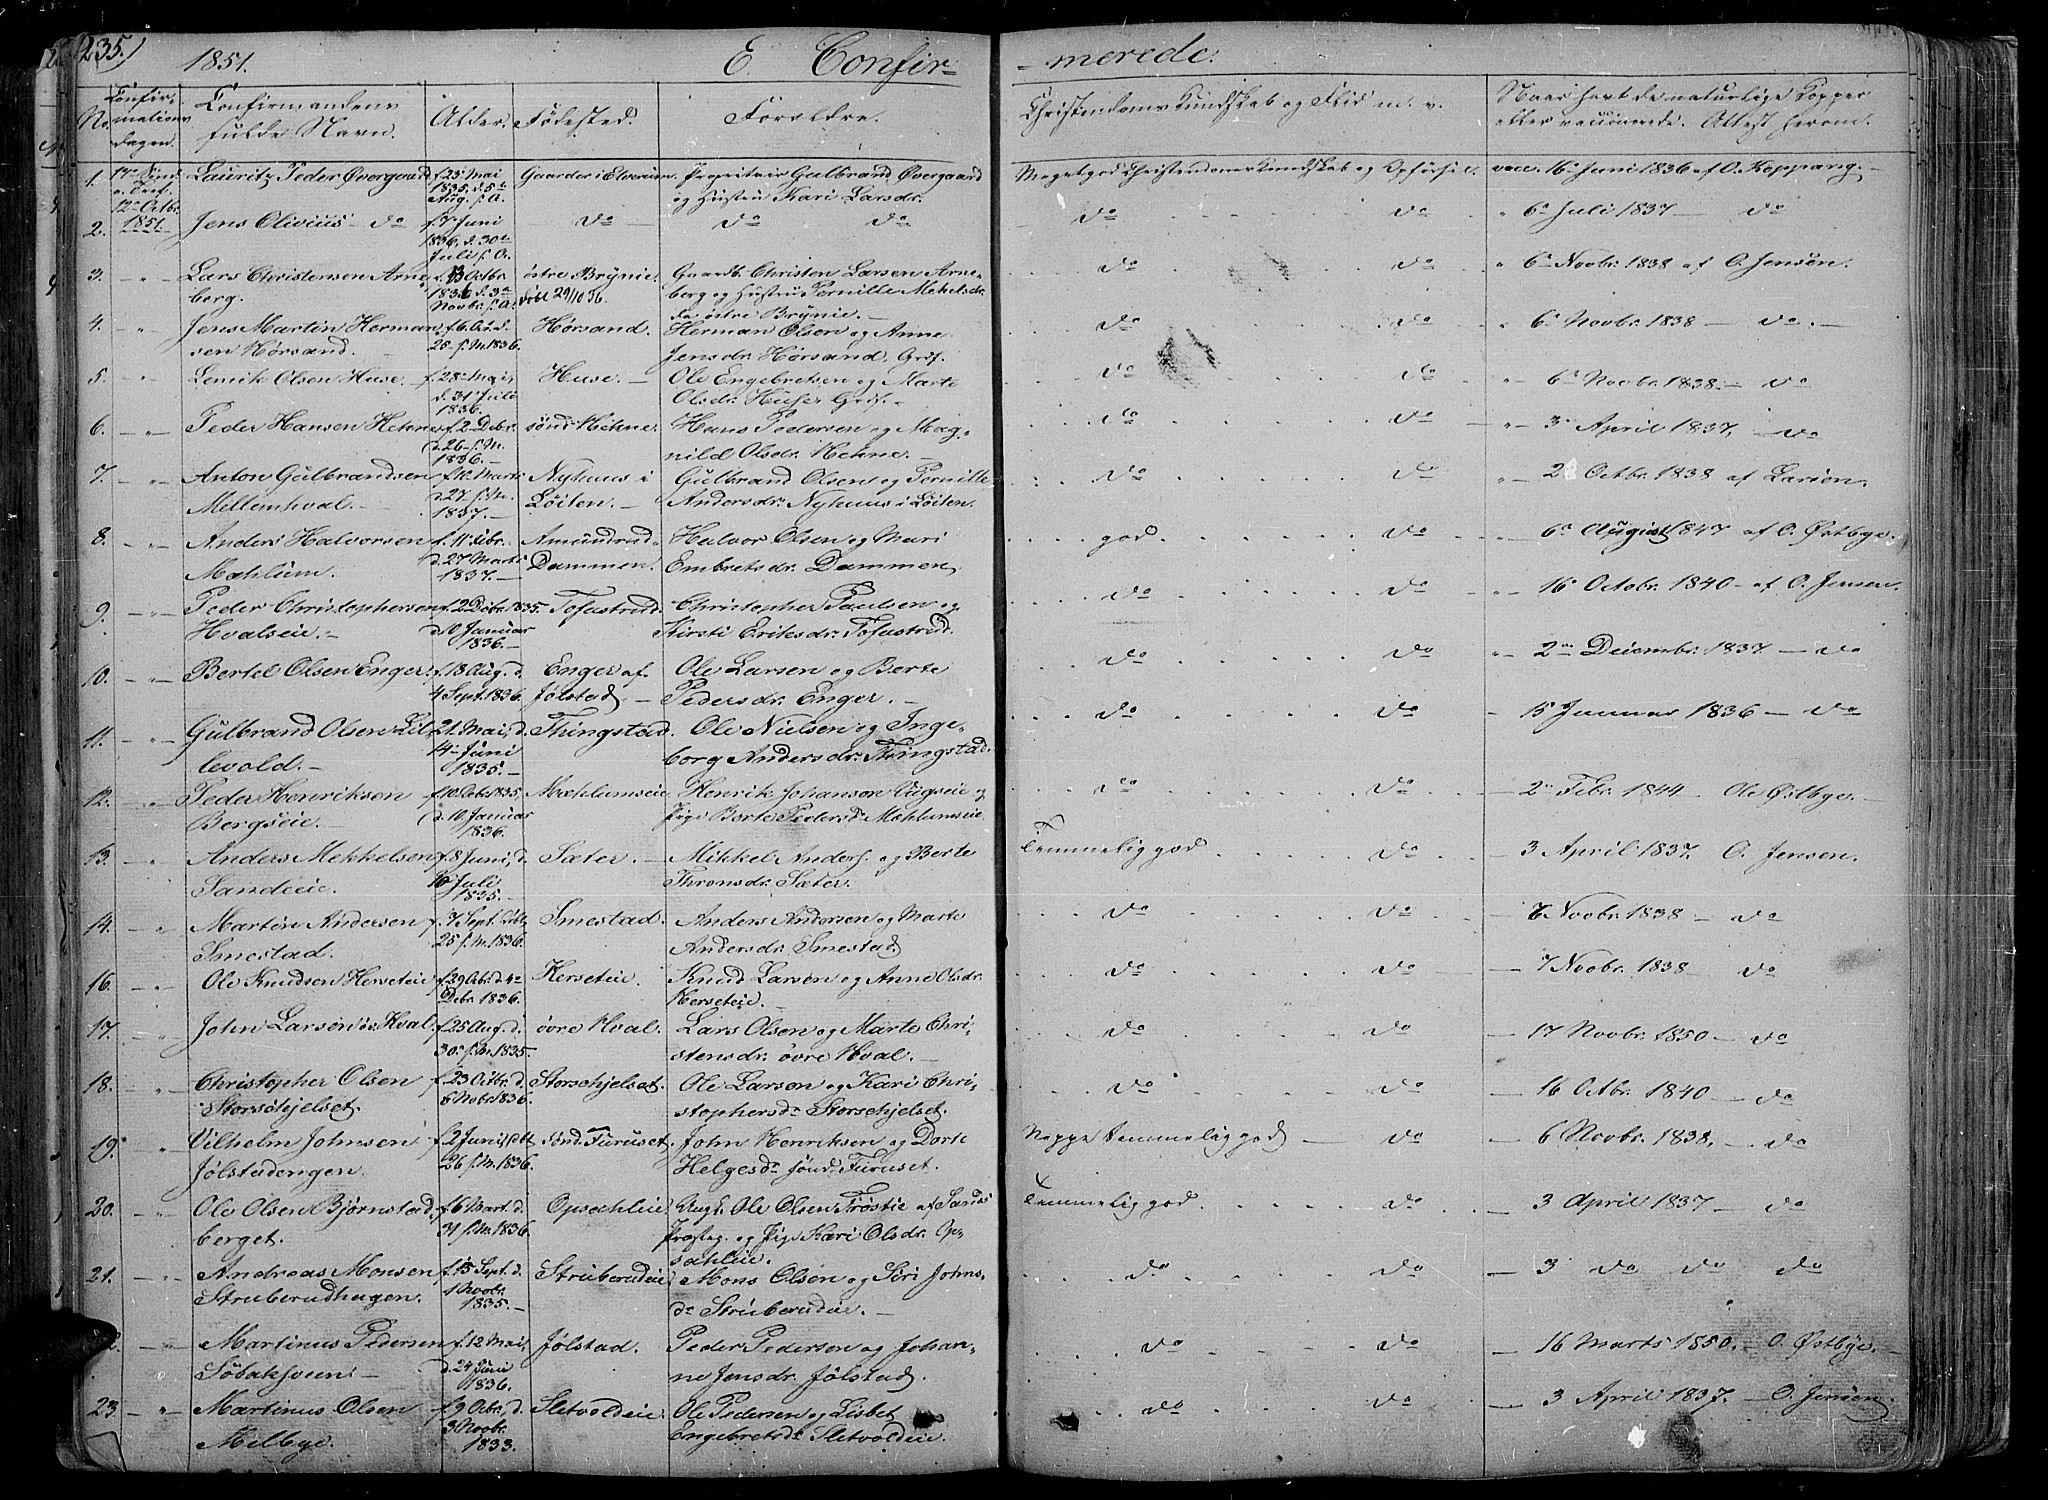 235.)
1851.
E. Confir-
-merede:
No.
Confir-
mations
dagen.
Confirmandens
fulde Navn.
Alder.
Fødested.
Forældre.
Christendoms Kundskab og Flid m. v.
Naar havt de naturlige Kopper
eller vaccinerede. Attest herom.
1. 12te Octbr. 1851. Lauritz Peder Øvergaard f. 25 Mai 1835, d. 5te Aug. s. A. Gaarder i Elverum. Proprietair Gulbrand Øvergaard
og Hustru Kari Larsdr. Meget god Christendoms Kundskab og Opførsel. vacc. 16de Juni 1836 af O. Koppang.
2. Jens Olivius do f. 7 Juni 1836, d. 30te Juli s. A. do do do do do " 6te Juli 1837 — do
3. — " Lars Christensen Arne-
berg. f. 13 Octbr. 1836 d. 3die Novbr. s. A. østre Brynie.
døbt 29/10 36. Gaardb. Christen Larsen Arne-
berg og Hustru Pernille Mekelsdr.
østre Brynie. — do do " 6te Novbr. 1838 af O. Jensen.
4. — " Jens Martin Herman-
sen Hørsand. Hørsand. Herman Olsen og Anne
Jensdr. Hørsand. do do 6te Novbr. 1838 — do. —
5. — " Lemik Olsen Huse. f. 28 Mai, d. 31 Juli 1836. Huse. — Ole Engebretsen og Marte
Olsdr. Huse. do do 6te Novbr. 1838. — do
6. — " Peder Hansen Hehne f. 2 Debr. d. 26 s. M. 1836. — sønd. Hehne. Hans Pedersen og Mag-
nild Olsdr. Hehne. — do do 3 April 1837. — do
7. — " Anton Gulbrandsen
Mellemhval. — f. 10 Marts d. 27 s. M. 1837. — Nyhuus i
Løiten. — Gulbrand Olsen og Pernille
Andersdr. Nyhuus i Løiten. do do 2 Octbr. 1838 af Larsen.
8. — " Anders Halvorsen
Mæhlum. f. 11 Febr. d. 27 Marts 1837. — Amundrud-
Dammen. Halvor Olsen og Mari
Embretsdr. Dammen god do 6te August 1847 af O. Østbye.
9. — " Peder Christophersen
Hvalseie. — f. 2 Debr. 1835. d. 10 Januar 1836. — Tofastrud. Christopher Paulsen og
Kirsti Eriksdr. Tofastrud. do do 16 Octobr. 1840 — af O. Jensen.
10. — " Bertel Olsen Enger. f. 18 Aug. d.
4 Sept. 1836. Enger af
Jølstad. — Ole Larsen og Berte
Pedersdr. Enger. — do do 2 Decembr. 1837 — do
11. — " Gulbrand Olsen Lil-
levold. — 21. Mai, d. 14 Juni 1835. — Thingstad. Ole Nielsen og Inge-
borg Andersdr. Thingstad. do do 15 Januar 1836 — do
12. — " Peder Henriksen
Bergseie. — f. 10 Octbr. 1835. d. 10 Januar 1836. — Mæhlumseie. Henrik Johanson og
Pige Berte Pedersdr. Mæhlumseie. do do — 2 Febr. 1844 — Ole Østbye. —
13. — " Anders Mekkelsen
Sandeie. f. 8 Juni, d. 16 Juli 1835. — Sæter. — Mikkel Anders. og Berte
Thronsdr. Sæter. Temmelig god do — 3 April 1837. O. Jensen.
14. — " Martin Andersen
Smestad. f. 7 Sept. døbt 25 s. M. 1836. Smestad. Anders Andersen og Marte
Andersdr. Smestad. do do — 6 Novbr. 1838 — do
16. — " Ole Knudsen Herseteie f. 29 Octbr. d. 4de
Debr. 1836. Herseteie. Knud Larsen og Anne Olsdr.
Herseteie. — do do — 7 Novbr. 1838 — do
17. — " John Larsen øv. Hval. f. 25 Aug. d.
30 s. M. 1835. øvre Hval. Lars Olsen og Marte Chri-
stensdr. øvre Hval. — do do — 17 Novbr. 1850 — do
18. — " Christopher Olsen
Storsehjelset. f. 23 Octbr. d.
6 Novbr. 1836. Storsehjelset. Ole Larsen og Kari Chri-
stophersdr. Storsehjelset. do do — 16 Octbr. 1840 — do
19. — " Vilhelm Johnsen
Jølstadengen. f. 2 Juni, døbt
26 s. M. 1836. sønd. Furuset, John Henriksen og Dorte
Helgesdr. sønd. Furuset. Neppe temmelig god — do — 6 Novbr. 1838. — do
20. — " Ole Olsen Bjørnstad-
berget. f. 6 Mart. d.
31 s. M. 1836. Opsahleie. Ungk. Ole Olsen Trøstie af Sands
Præsteg. og Pige Kari Olsdr. Op-
sahleie. Temmelig god do — 3 April 1837 — do
21. — " Andreas Monsen
Struberudhagen. f. 15 Sept. d. 1 Novbr. 1835. — Struberudeie. Mons Olsen og Siri Johns-
dr. Struberudeie. — do do — 3 do do do
2. — " Martinus Pedersen
f. 12 Mai, d. 24 Juni 1836. Jølstad. Peder Pedersen og Johan-
ne Jensdr. Jølstad. do do — 16 Marts 1850. — O. Østbye. —
23. — " Martinus Olsen
Melbye. f. 9 Octbr. d. 3 Novbr. 1833. Sletvoldeie. Ole Pedersen og Lisbet
Engebretsdr. Sletvoldeie. do do — 3 April 1837. — O. Jensen.